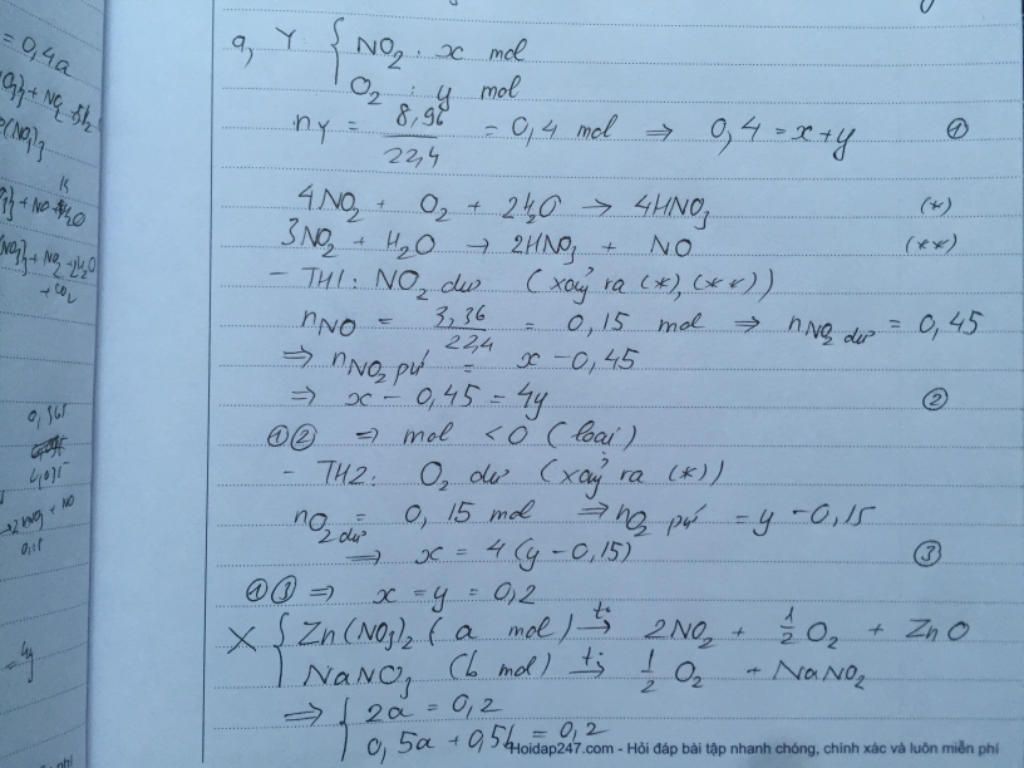 = 0,4a
a, Y { NO₂ : x mol
O₂ : y mol
nY = 8,96 / 22,4 = 0,4 mol ⇒ 0,4 = x + y ①
4NO₂ + O₂ + 2H₂O → 4HNO₃ (*)
3NO₂ + H₂O → 2HNO₃ + NO (**)
- TH1: NO₂ dư (xảy ra (*), (**))
nNO = 3,36 / 22,4 = 0,15 mol ⇒ nNO₂ dư = 0,45
⇒ nNO₂ pứ = x - 0,45
⇒ x - 0,45 = 4y ②
①② ⇒ mol < 0 (loại)
- TH2: O₂ dư (xảy ra (*))
nO₂ dư = 0,15 mol ⇒ nO₂ pứ = y - 0,15
⇒ x = 4(y - 0,15) ③
①③ ⇒ x = y = 0,2
X { Zn(NO₃)₂ (a mol) t°→ 2NO₂ + 1/2 O₂ + ZnO
NaNO₃ (b mol) t°→ 1/2 O₂ + NaNO₂
⇒ { 2a = 0,2
0,5a + 0,5b = 0,2
Hoidap247.com - Hỏi đáp bài tập nhanh chóng, chính xác và luôn miễn phí